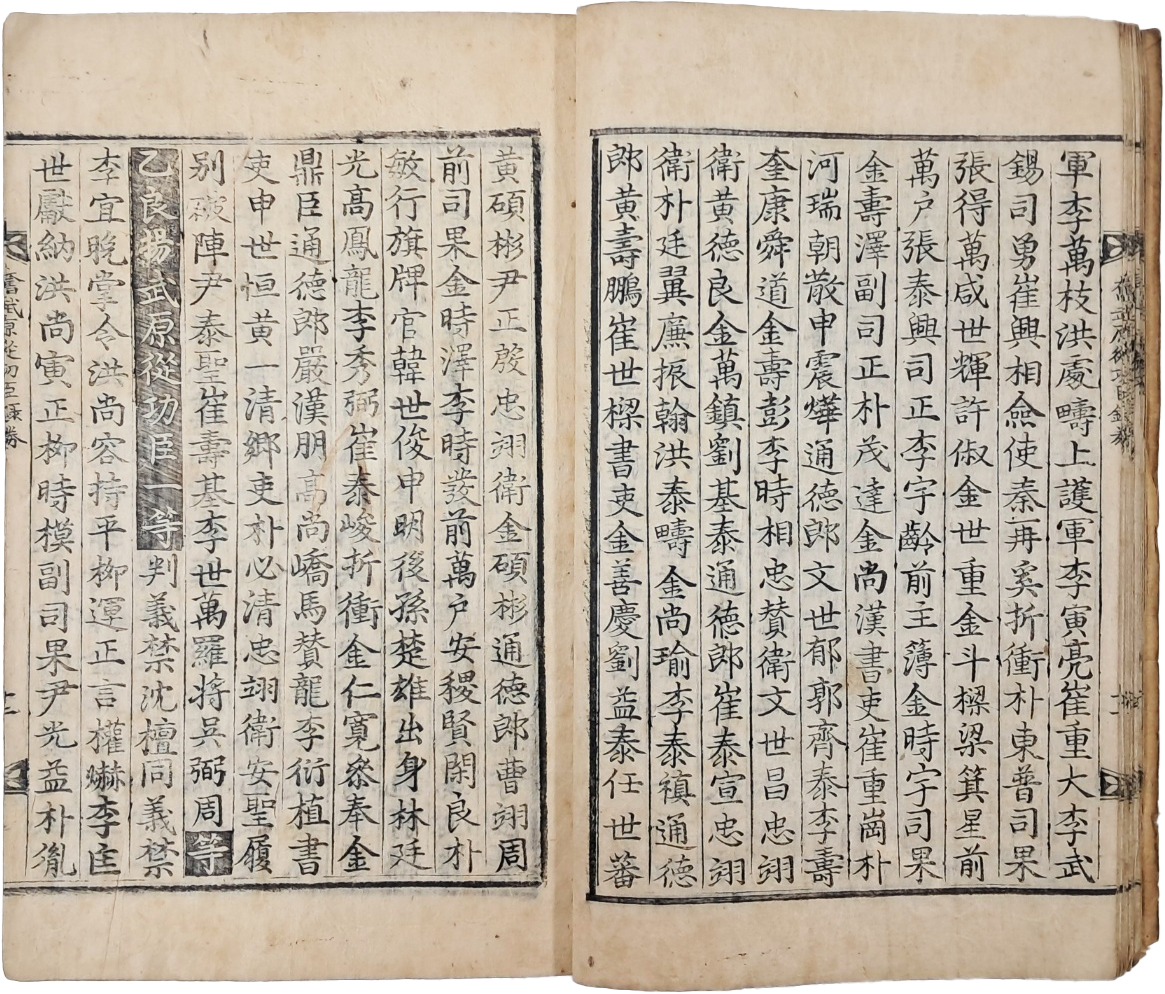 軍李萬枝洪處疇上護軍李寅亮崔重大李武
錫司勇崔興相僉使秦再奚折衝朴東普司果
張得萬咸世輝許俶金世重金斗樑梁箕星前
萬户張泰興司正李宇齡前主簿金時字司果
金壽澤副司正朴茂達金尚漢書吏崔重崗朴
河瑞朝散申震燁通德郎文世郁郭齊泰李壽
奎康舜道金壽彭李時相忠賛衛文世昌忠翊
衛黃德良金萬鎮劉基泰通德郎崔泰宣忠翊
衛朴廷翼㢘振翰洪泰疇金尚瑜李泰禛通德
郎黃壽鵬崔世樑書吏金善慶劉益泰任世蕃
黃碩彬尹正殷忠翊衛金碩彬通德郎曹翊周
前司果金時澤李時發前萬户安稷賢閑良朴
敏行旗牌官韓世俊申明後孫楚雄出身林廷
光高鳳龍李秀弼崔泰峻折衝金仁寬叅奉金
鼎臣通德郎嚴漢朋高尚嶠馬賛龍李衍植書
吏申世恒黃一清鄉吏朴必清忠翊衛安聖履
别破陣尹泰聖崔壽基李世萬羅將吳弼周等
乙良揚武原從功臣一等判義禁沈檀同義禁
李宜晩掌令洪尚容持平柳運正言權爀李匡
世獻納洪尚寅正柳時模副司果尹光益朴胤